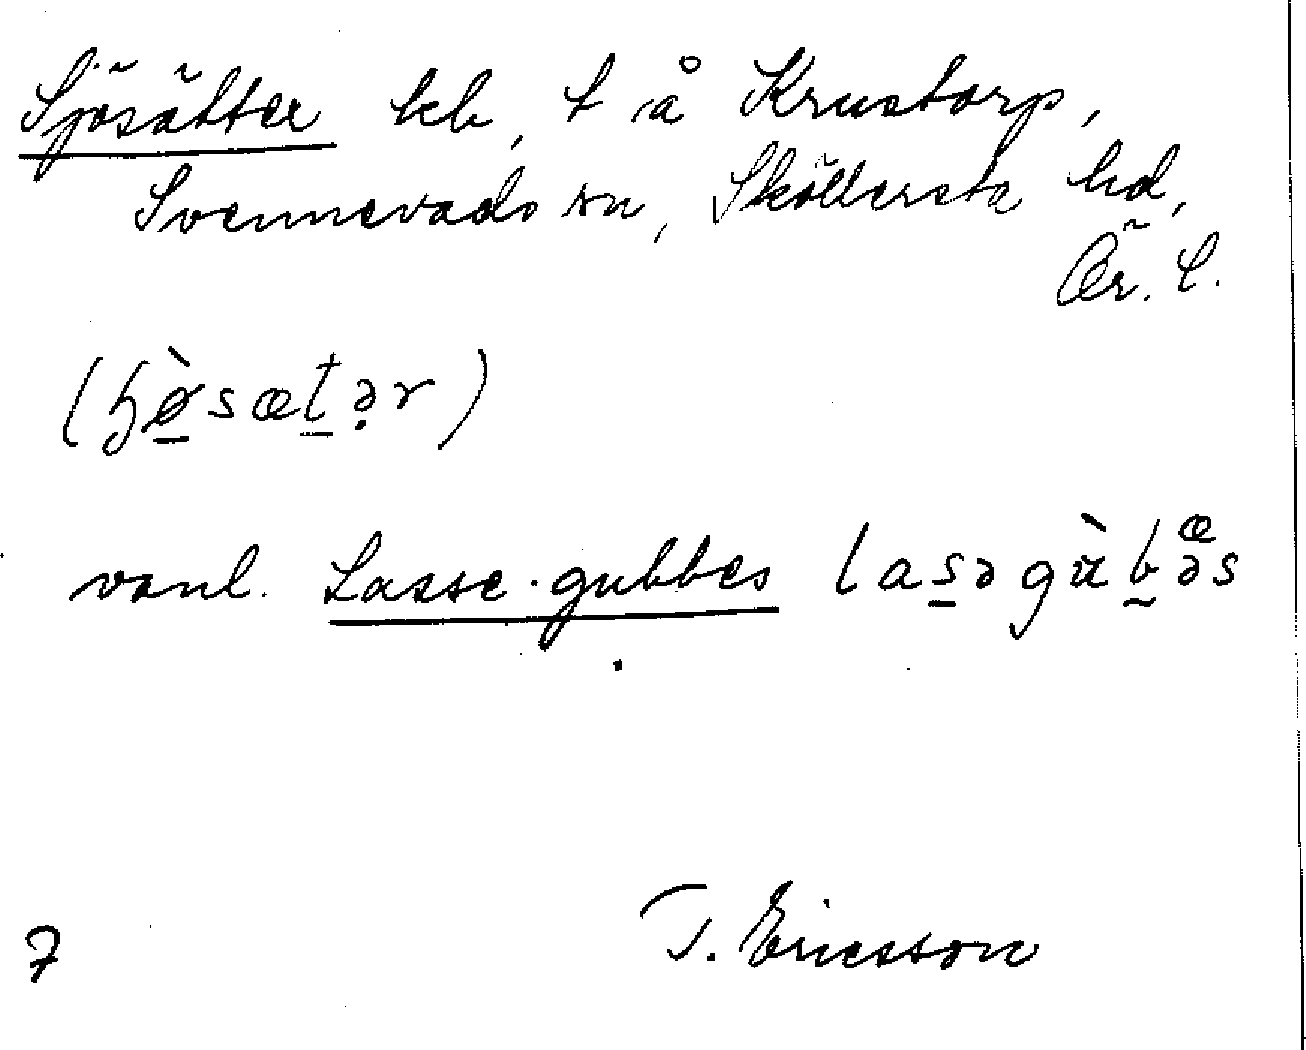 Sjösätter lch, t å Krustorp,
Svennevads sn, Sköllersta hd,
Ör. l.
(ɧø̀sætə̣r)
vanl. Lasse-gubbes lasəgùbəs
æ
T. Ericsson
7